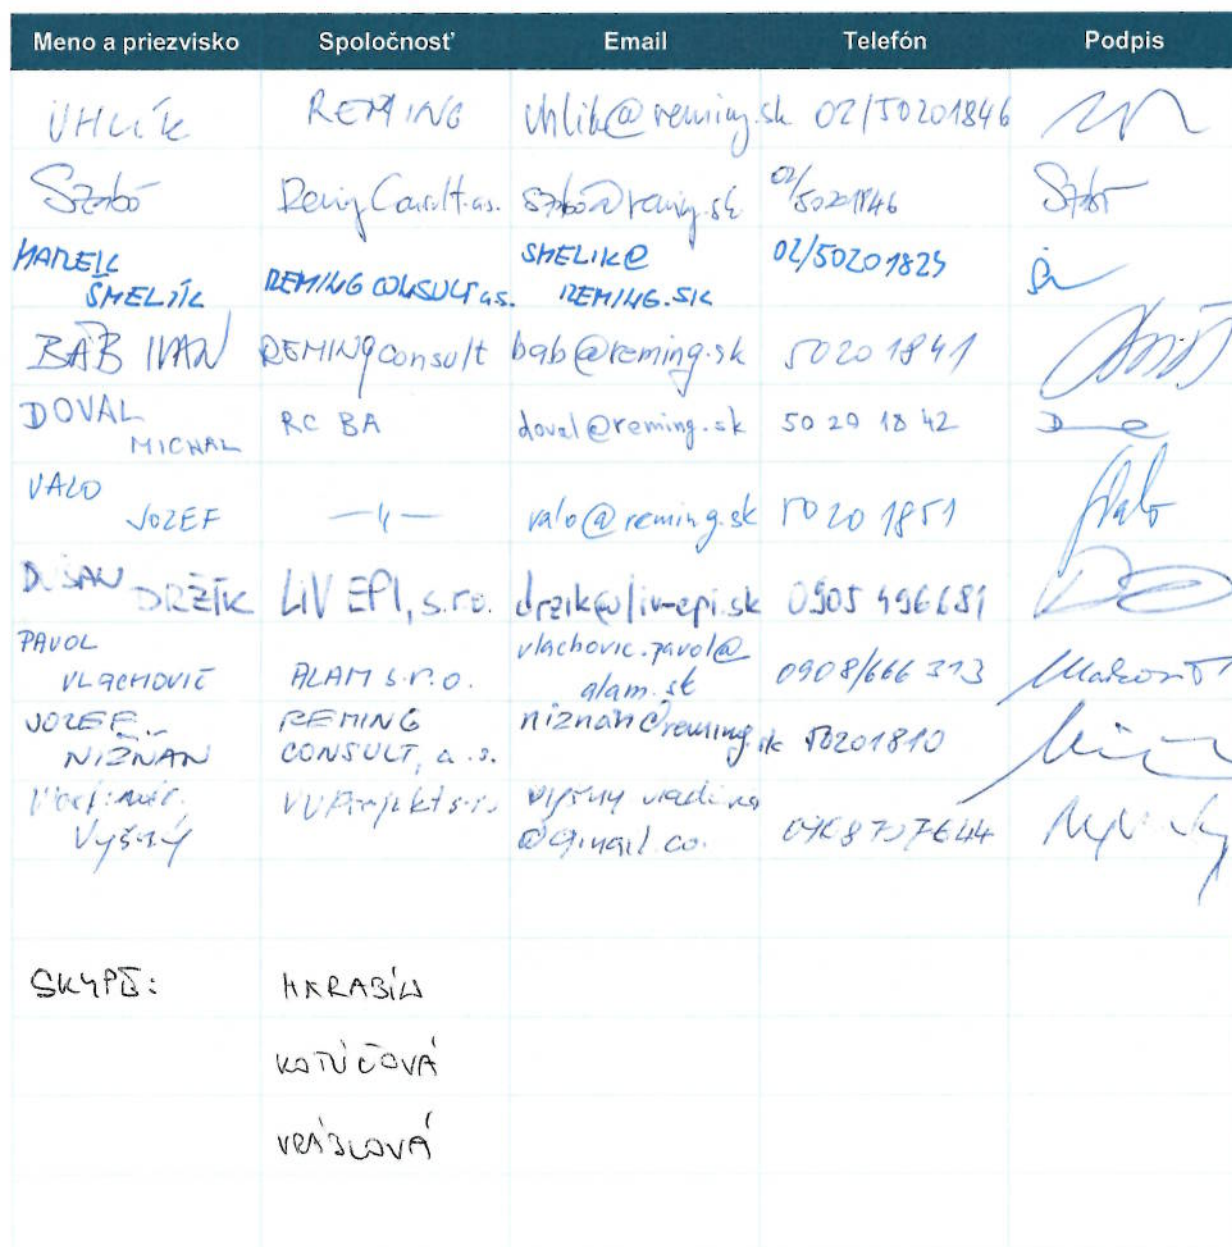 Meno a priezvisko Spoločnosť Email Telefón Podpis
UHLÍK REMING uhlik@reming.sk 02/50201846
Szabó Reming Consult a.s. szabo@reming.sk 02/50201846 Szabó
MAREK ŠMELÍK REMING CONSULT a.s. SMELIK@REMING.SK 02/50201825
BÁB IVAN REMING consult bab@reming.sk 50201841
DOVAL MICHAL RC BA doval@reming.sk 50 20 18 42
VALO JOZEF —〃— valo@reming.sk 50 20 1851 Valo
DUŠAN DRŽÍK LiV EPI, s.r.o. drzik@liv-epi.sk 0905 496681
PAVOL VLACHOVIČ ALAM s.r.o. vlachovic.pavol@alam.sk 0908/666 313
JOZEF NIŽŇAN REMING CONSULT, a.s. niznan@reming.sk 50201810
Vladimír Vyšný VVProjekt s.r.o. @gmail.co.
SKYPE: HARABIN
KOTÚČOVÁ
VRÁBLOVÁ